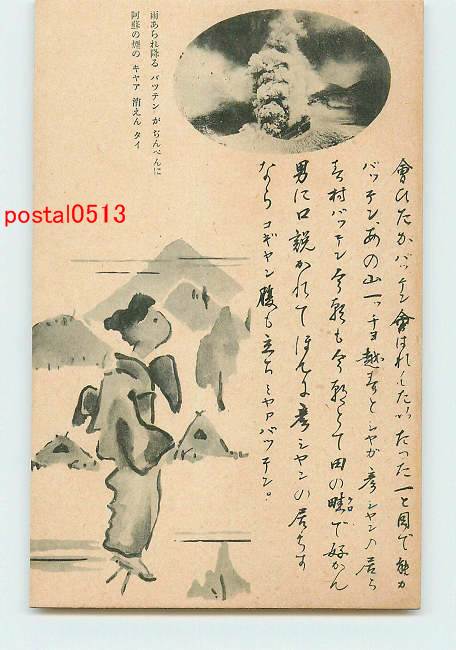 雨あられ降る バツテン がぢんべんに
阿蘇の煙の キヤア 消えん タイ
會ひたかバッテン會はれんたいたった一と目で能か
バッテン、あの山一ッチョ越すとシャが彦シャンの居る
村バッテン今朝も今朝とて田の畦で好かん
男に口説かれてほんに彦シャンの居らす
ならコギャン腹も立ちミャアバッテン。
postal0513